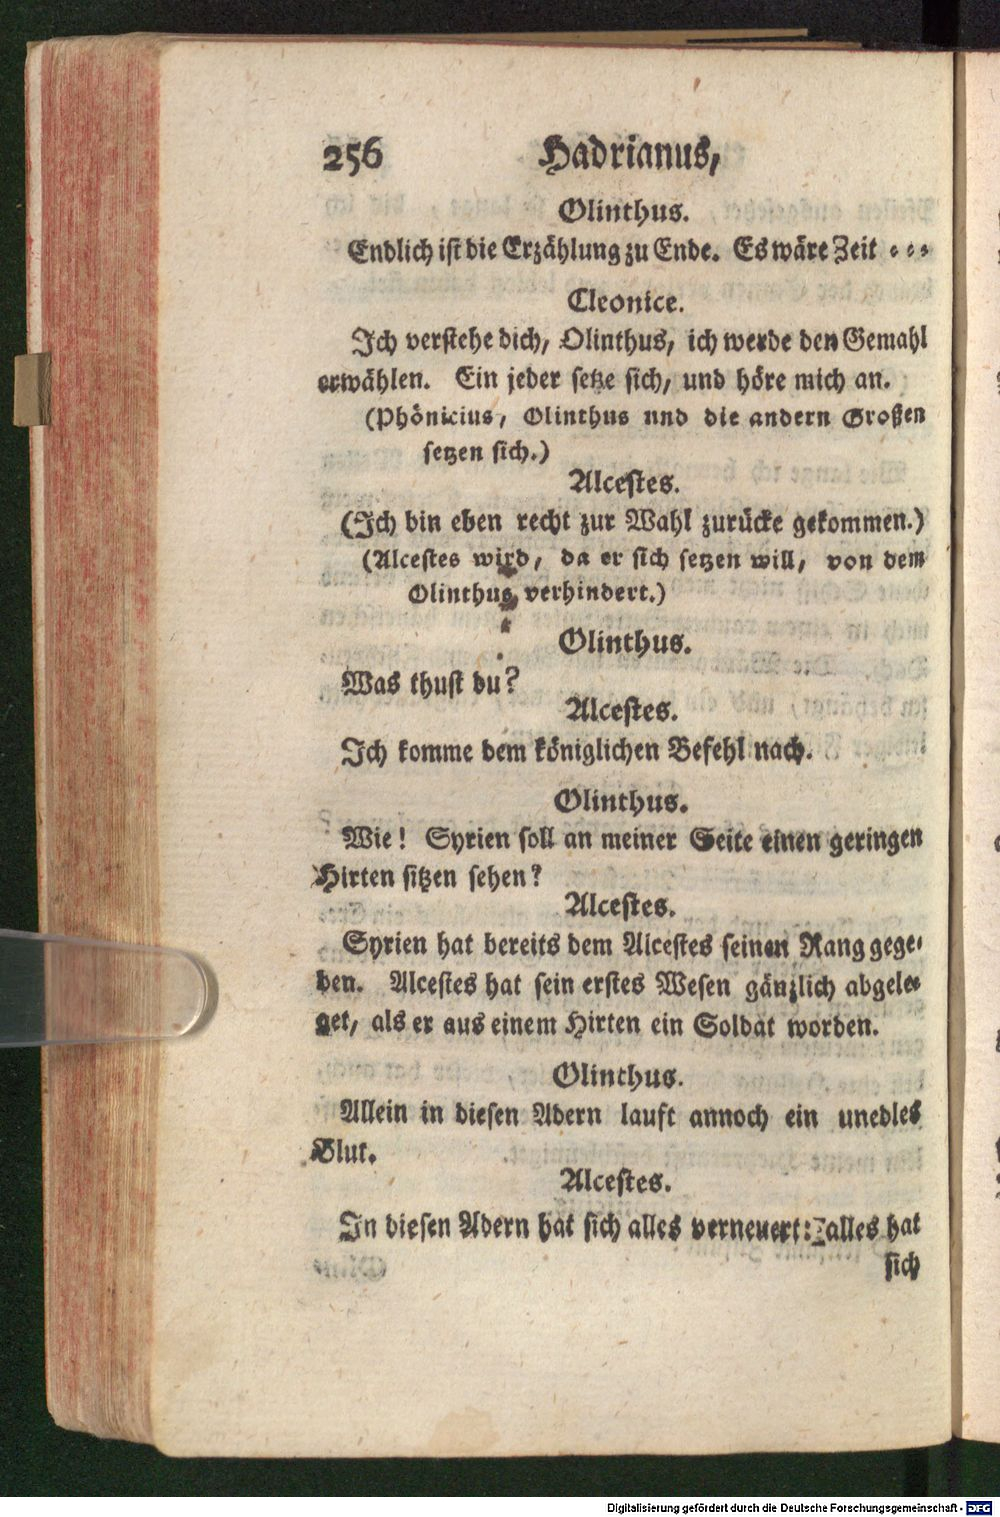 256 Hadrianus,
Olinthus.
Endlich ist die Erzählung zu Ende. Es wäre Zeit ...
Cleonice.
Ich verstehe dich, Olinthus, ich werde den Gemahl
erwählen. Ein jeder setze sich, und höre mich an.
(Phönicius, Olinthus und die andern Großen
setzen sich.)
Alcestes.
(Ich bin eben recht zur Wahl zurücke gekommen.)
(Alcestes wird, da er sich setzen will, von dem
Olinthus verhindert.)
Olinthus.
Was thust du?
Alcestes.
Ich komme dem königlichen Befehl nach.
Olinthus.
Wie! Syrien soll an meiner Seite einen geringen
Hirten sitzen sehen?
Alcestes.
Syrien hat bereits dem Alcestes seinen Rang gege-
ben. Alcestes hat sein erstes Wesen gänzlich abgele-
get, als er aus einem Hirten ein Soldat worden.
Olinthus.
Allein in diesen Adern lauft annoch ein unedles
Blut.
Alcestes.
In diesen Adern hat sich alles verneuert: alles hat
sich
Digitalisierung gefördert durch die Deutsche Forschungsgemeinschaft - DFG